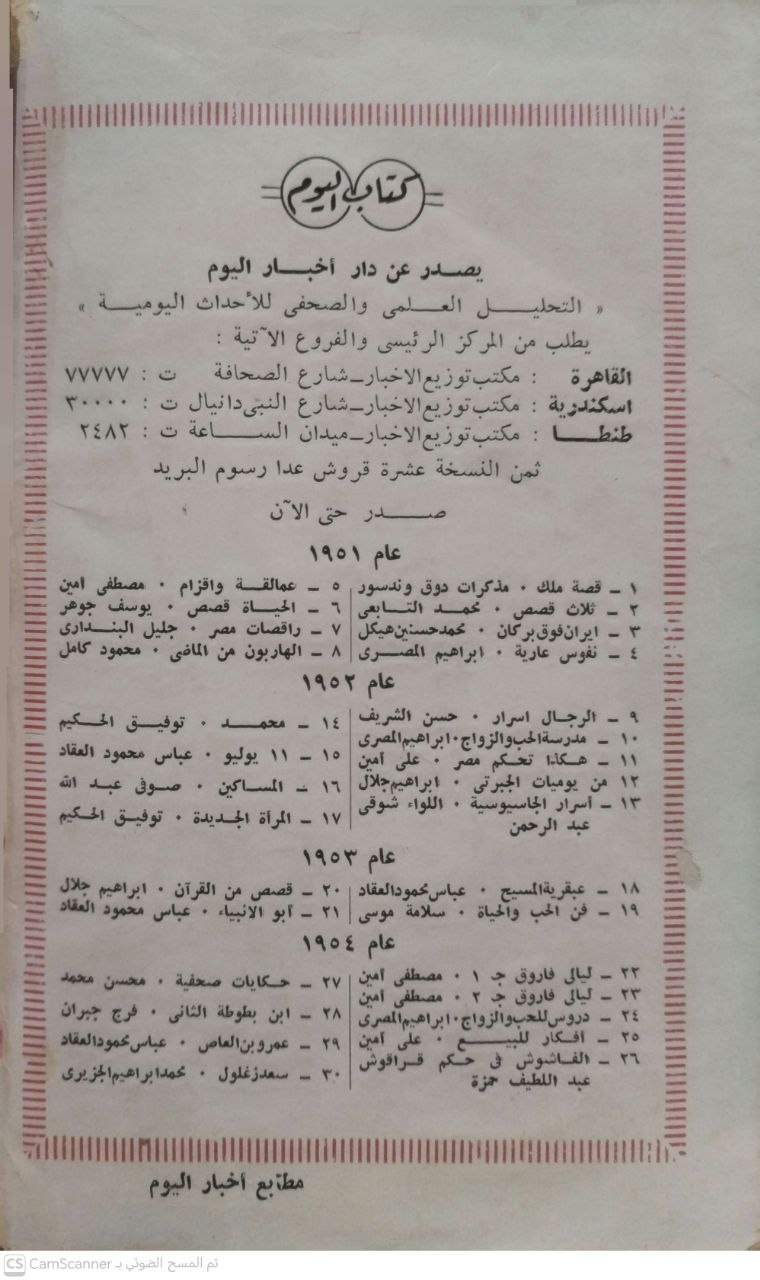 كتاب اليوم
يصدر عن دار أخبار اليوم
« التحليل العلمى والصحفى للأحداث اليومية »
يطلب من المركز الرئيسى والفروع الآتية :
القاهرة : مكتب توزيع الاخبار ـ شارع الصحافة ت : ٧٧٧٧٧
اسكندرية : مكتب توزيع الاخبار ـ شارع النبى دانيال ت : ٣٠٠٠٠
طنطا : مكتب توزيع الاخبار ـ ميدان الساعة ت : ٢٤٨٢
ثمن النسخة عشرة قروش عدا رسوم البريد
صدر حتى الآن
عام ١٩٥١
١ ـ قصة ملك ٠ مذكرات دوق وندسور
٢ ـ ثلاث قصص ٠ محمد التابعى
٣ ـ ايران فوق بركان ٠ محمد حسنين هيكل
٤ ـ نفوس عارية ٠ ابراهيم المصرى
٥ ـ عمالقة واقزام ٠ مصطفى امين
٦ ـ الحياة قصص ٠ يوسف جوهر
٧ ـ راقصات مصر ٠ جليل البندارى
٨ ـ الهاربون من الماضى ٠ محمود كامل
عام ١٩٥٢
٩ ـ الرجال اسرار ٠ حسن الشريف
١٠ ـ مدرسة الحب والزواج ٠ ابراهيم المصرى
١١ ـ هكذا تحكم مصر ٠ على أمين
١٢ من يوميات الجبرتى ٠ ابراهيم جلال
١٣ ـ أسرار الجاسوسية ٠ اللواء شوقى
عبد الرحمن
١٤ ـ محمد ٠ توفيق الحكيم
١٥ ـ ١١ يوليو ٠ عباس محمود العقاد
١٦ ـ المساكين ٠ صوفى عبد الله
١٧ ـ المرأة الجديدة ٠ توفيق الحكيم
عام ١٩٥٣
١٨ ـ عبقرية المسيح ٠ عباس محمود العقاد
١٩ ـ فن الحب والحياة ٠ سلامة موسى
٢٠ ـ قصص من القرآن ٠ ابراهيم جلال
٢١ ـ أبو الانبياء ٠ عباس محمود العقاد
عام ١٩٥٤
٢٢ ـ ليالى فاروق جـ ١ ٠ مصطفى أمين
٢٣ ـ ليالى فاروق جـ ٢ ٠ مصطفى أمين
٢٤ ـ دروس للحب والزواج ٠ ابراهيم المصرى
٢٥ ـ أفكار للبيع ٠ على أمين
٢٦ ـ الفاشوش فى حكم قراقوش
عبد اللطيف حمزة
٢٧ ـ حكايات صحفية ٠ محسن محمد
٢٨ ـ ابن بطوطة الثانى ٠ فرج جبران
٢٩ ـ عمرو بن العاص ٠ عباس محمود العقاد
٣٠ ـ سعد زغلول ٠ محمد ابراهيم الجزيرى
مطابع أخبار اليوم
CS CamScanner تم المسح الضوئي بـ